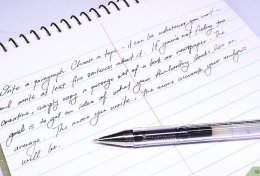 Write a paragraph. Choose a topic - it can be whatever you want -
and write at least five sentences about it. If you're not feeling too
creative, simply copy a passage out of a book or newspaper. The
goal is to get an idea of what your handwriting looks like on
average. The more you write, the more accurate your analysis
will be.